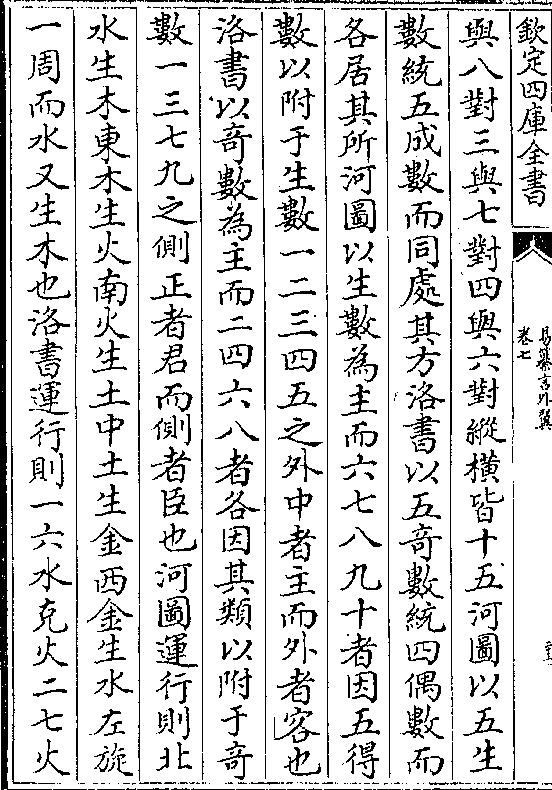 欽定四庫全書
易纂言外翼
卷七
與八對三與七對四與六對縱橫皆十五河圖以五生
數統五成數而同處其方洛書以五奇數統四偶數而
各居其所河圖以生數為主而六七八九十者因五得
數以附于生數一二三四五之外中者主而外者客也
洛書以奇數為主而二四六八者各因其類以附于奇
數一三七九之側正者君而側者臣也河圖運行則北
水生木東木生火南火生土中土生金西金生水左旋
一周而水又生木也洛書運行則一六水克火二七火